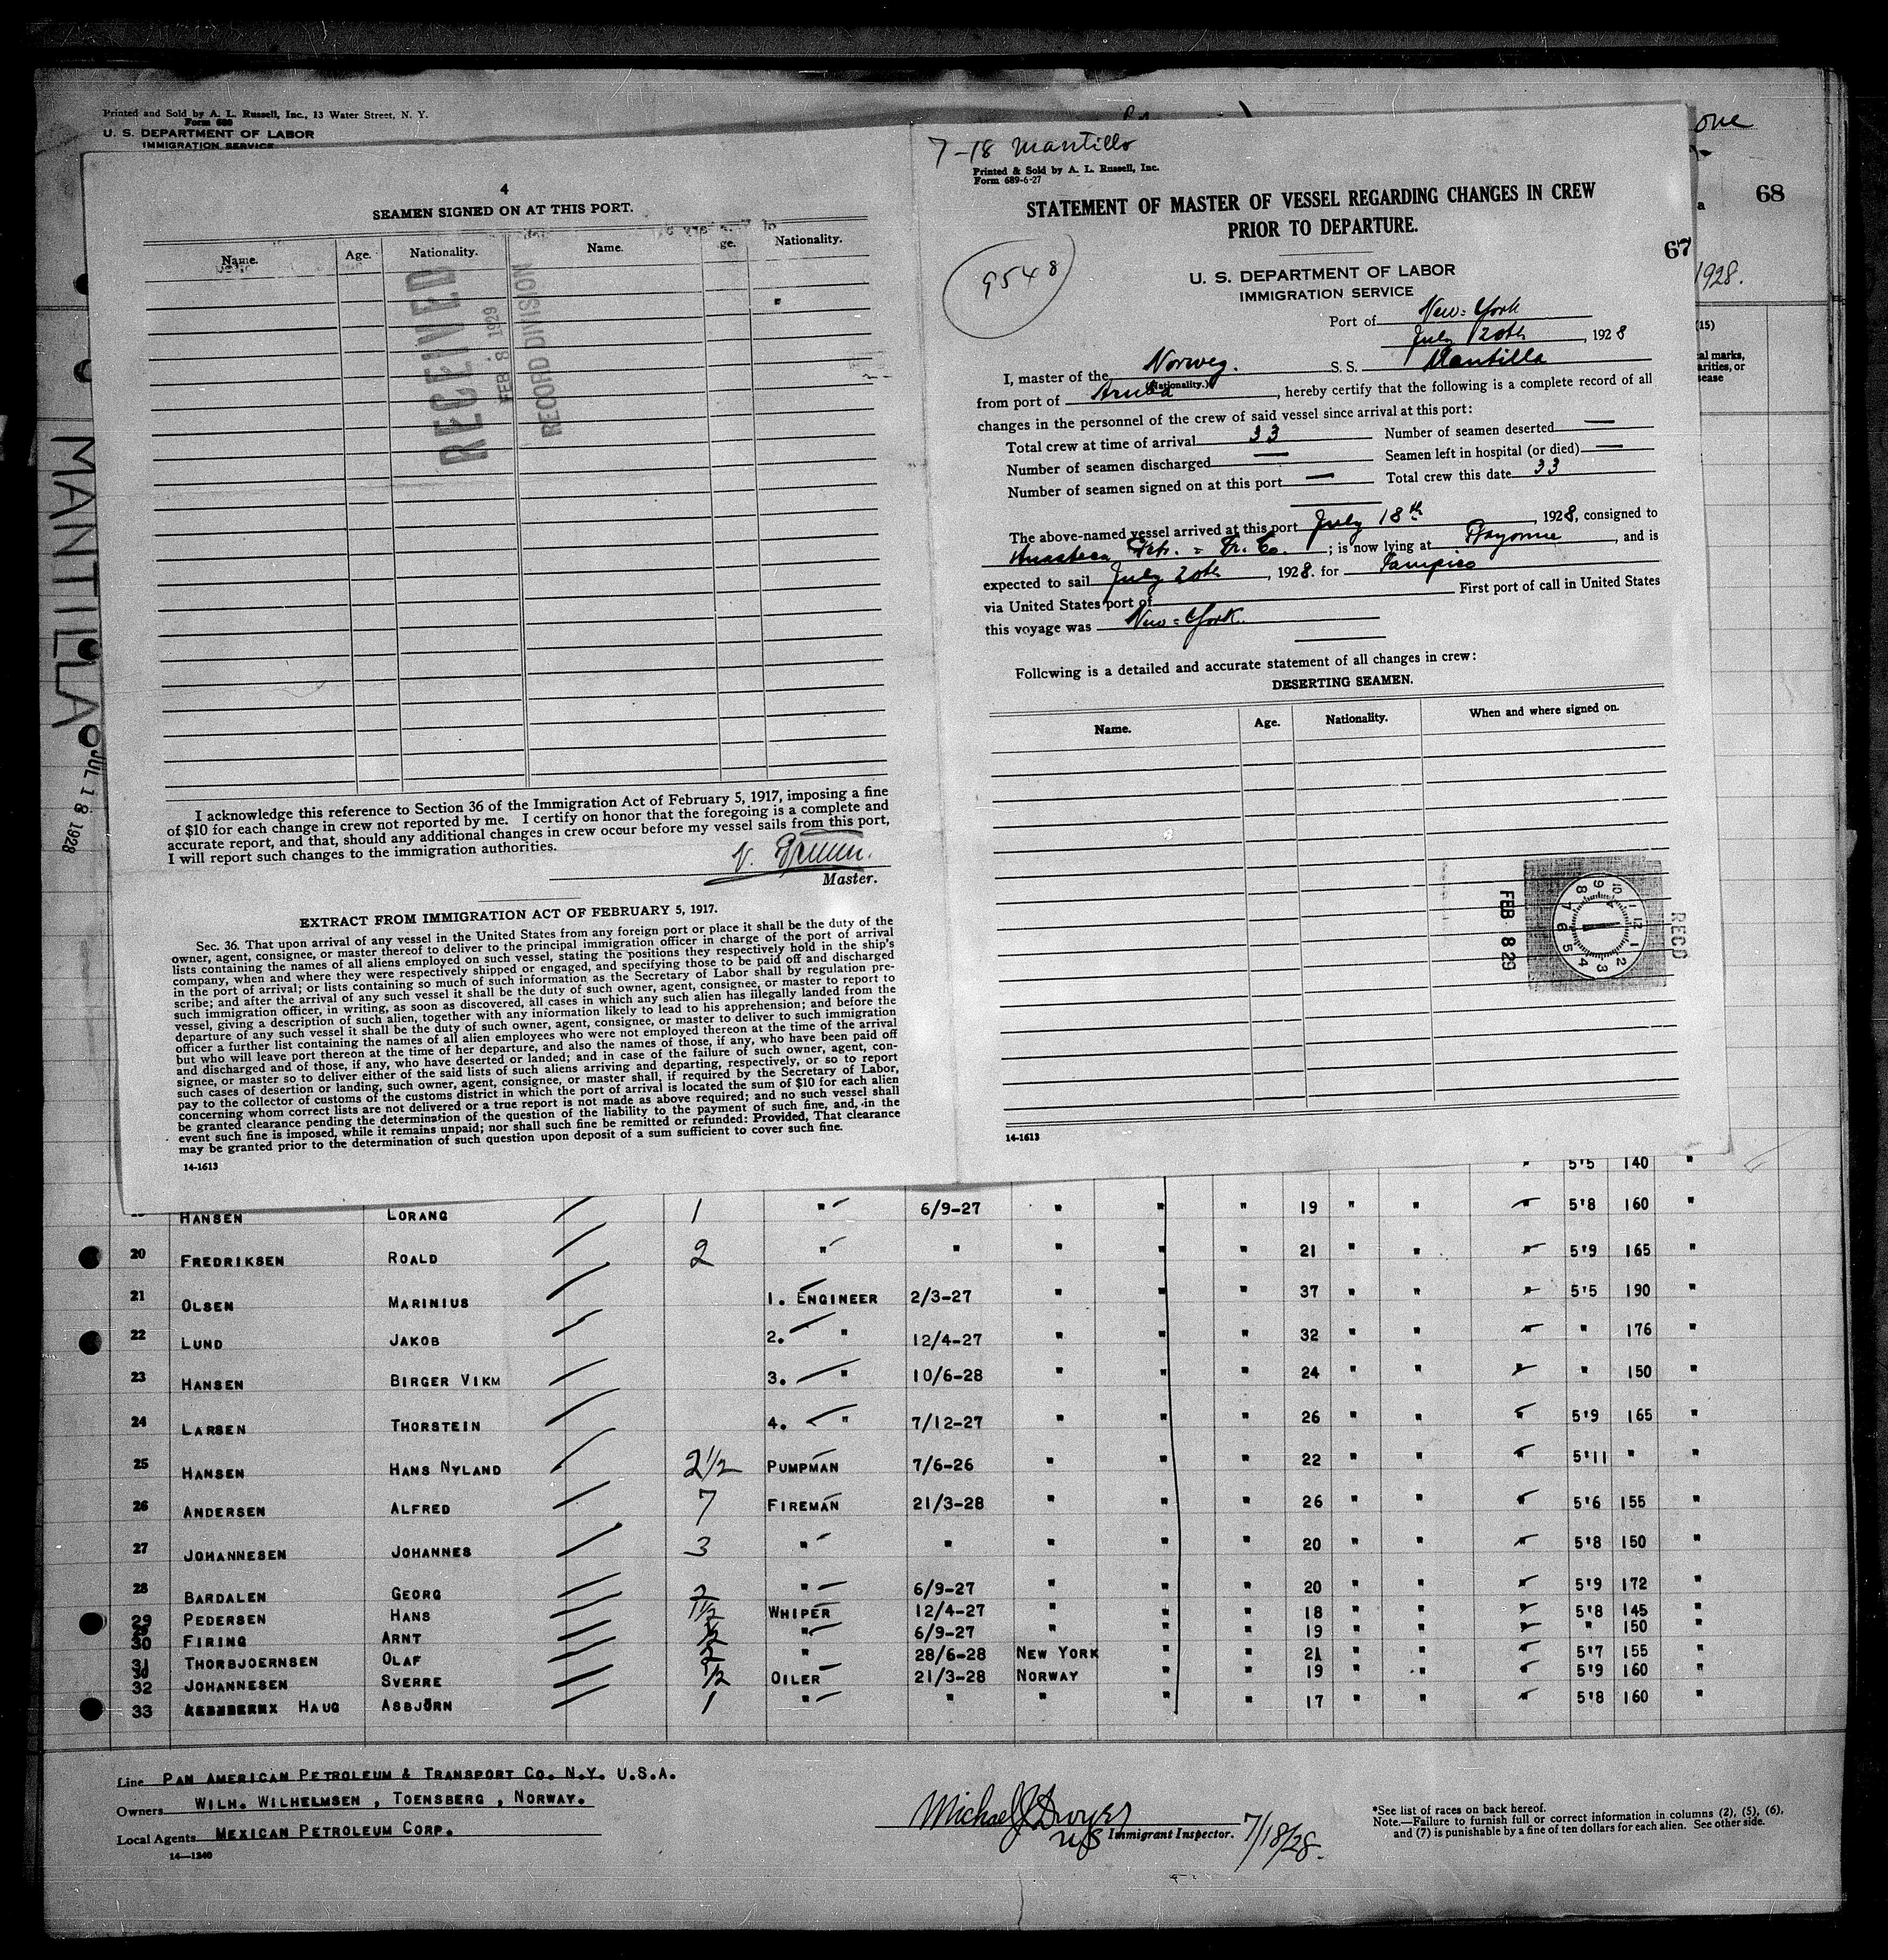 Printed and Sold by A. L. Russell, Inc., 13 Water Street, N. Y.
Form 680
U. S. DEPARTMENT OF LABOR
IMMIGRATION SERVICE
one
68
1928.
(15)
al marks,
arities, or
sease
MANTILLA
JUL 18 1928
4
SEAMEN SIGNED ON AT THIS PORT.
Name. Age. Nationality. Name. ge. Nationality.
RECEIVED
FEB 8 1929
RECORD DIVISION
I acknowledge this reference to Section 36 of the Immigration Act of February 5, 1917, imposing a fine
of $10 for each change in crew not reported by me. I certify on honor that the foregoing is a complete and
accurate report, and that, should any additional changes in crew occur before my vessel sails from this port,
I will report such changes to the immigration authorities.
Master.
EXTRACT FROM IMMIGRATION ACT OF FEBRUARY 5, 1917.
Sec. 36. That upon arrival of any vessel in the United States from any foreign port or place it shall be the duty of the
owner, agent, consignee, or master thereof to deliver to the principal immigration officer in charge of the port of arrival
lists containing the names of all aliens employed on such vessel, stating the positions they respectively hold in the ship's
company, when and where they were respectively shipped or engaged, and specifying those to be paid off and discharged
in the port of arrival; or lists containing so much of such information as the Secretary of Labor shall by regulation pre-
scribe; and after the arrival of any such vessel it shall be the duty of such owner, agent, consignee, or master to report to
such immigration officer, in writing, as soon as discovered, all cases in which any such alien has illegally landed from the
vessel, giving a description of such alien, together with any information likely to lead to his apprehension; and before the
departure of any such vessel it shall be the duty of such owner, agent, consignee, or master to deliver to such immigration
officer a further list containing the names of all alien employees who were not employed thereon at the time of the arrival
but who will leave port thereon at the time of her departure, and also the names of those, if any, who have been paid off
and discharged and of those, if any, who have deserted or landed; and in case of the failure of such owner, agent, con-
signee, or master so to deliver either of the said lists of such aliens arriving and departing, respectively, or so to report
such cases of desertion or landing, such owner, agent, consignee, or master shall, if required by the Secretary of Labor,
pay to the collector of customs of the customs district in which the port of arrival is located the sum of $10 for each alien
concerning whom correct lists are not delivered or a true report is not made as above required; and no such vessel shall
be granted clearance pending the determination of the question of the liability to the payment of such fine, and, in the
event such fine is imposed, while it remains unpaid; nor shall such fine be remitted or refunded: Provided, That clearance
may be granted prior to the determination of such question upon deposit of a sum sufficient to cover such fine.
14-1613
7-18 Mantillo
Printed & Sold by A. L. Russell, Inc.
Form 689-6-27
STATEMENT OF MASTER OF VESSEL REGARDING CHANGES IN CREW
PRIOR TO DEPARTURE.
67
9548
U. S. DEPARTMENT OF LABOR
IMMIGRATION SERVICE
Port of New-York
July 20th, 1928
I, master of the Norweg. S. S. Mantilla
(Nationality.)
from port of Aruba, hereby certify that the following is a complete record of all
changes in the personnel of the crew of said vessel since arrival at this port:
Total crew at time of arrival 33 Number of seamen deserted —
Number of seamen discharged — Seamen left in hospital (or died) —
Number of seamen signed on at this port — Total crew this date 33
The above-named vessel arrived at this port July 18th, 1928, consigned to
; is now lying at Bayonne, and is
expected to sail July 20th, 1928. for Tampico
via United States port of First port of call in United States
this voyage was New-York.
Following is a detailed and accurate statement of all changes in crew:
DESERTING SEAMEN.
Name. Age. Nationality. When and where signed on.
RECD
FEB 8 29
14-1613
" 5'5 140 "
HANSEN LORANG 1 " 6/9-27 " " " 19 " " " 5'8 160 "
20 FREDRIKSEN ROALD 2 " " " " " 21 " " " 5'9 165 "
21 OLSEN MARINIUS 1. ENGINEER 2/3-27 " " " 37 " " " 5'5 190 "
22 LUND JAKOB 2. " 12/4-27 " " " 32 " " " " 176 "
23 HANSEN BIRGER VIKM 3. " 10/6-28 " " " 24 " " " " 150 "
24 LARSEN THORSTEIN 4. " 7/12-27 " " " 26 " " " 5'9 165 "
25 HANSEN HANS NYLAND 2½ PUMPMAN 7/6-26 " " " 22 " " " 5'11 " "
26 ANDERSEN ALFRED 7 FIREMAN 21/3-28 " " " 26 " " " 5'6 155 "
27 JOHANNESEN JOHANNES 3 " " " " " 20 " " " 5'8 150 "
28 BARDALEN GEORG 2 " 6/9-27 " " " 20 " " " 5'9 172 "
29 PEDERSEN HANS 1½ WHIPER 12/4-27 " " " 18 " " " 5'8 145 "
30 FIRING ARNT ½ " 6/9-27 " " " 19 " " " " 150 "
31 THORBJOERNSEN OLAF 2 " 28/6-28 NEW YORK " " 21 " " " 5'7 155 "
32 JOHANNESEN SVERRE ½ OILER 21/3-28 NORWAY " " 19 " " " 5'9 160 "
33 HAUG ASBJÖRN 1 " " " " " 17 " " " 5'8 160 "
Line PAN AMERICAN PETROLEUM & TRANSPORT CO. N.Y. U.S.A.
Owners WILH. WILHELMSEN, TOENSBERG, NORWAY.
Local Agents MEXICAN PETROLEUM CORP.
14—1240
Michael J Dwyer
US Immigrant Inspector. 7/18/28.
*See list of races on back hereof.
Note.—Failure to furnish full or correct information in columns (2), (5), (6),
and (7) is punishable by a fine of ten dollars for each alien. See other side.